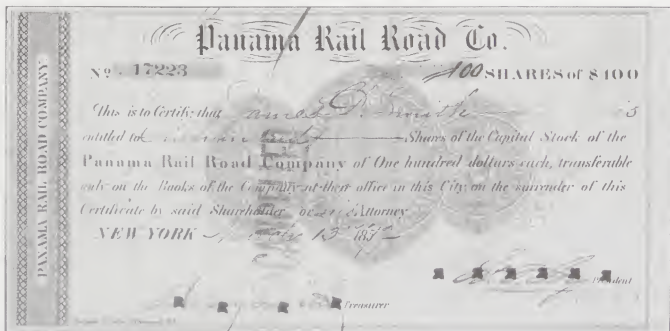 Panama Rail Road Co.
PANAMA RAIL ROAD COMPANY
No. 17223
100 SHARES of $100
This is to Certify that James D. Smith is
entitled to Shares of the Capital Stock of the
Panama Rail Road Company of One hundred dollars each, transferable
only on the Books of the Company at their office in this City, on the surrender of this
Certificate by said Shareholder or Attorney
NEW YORK 13
President
Treasurer